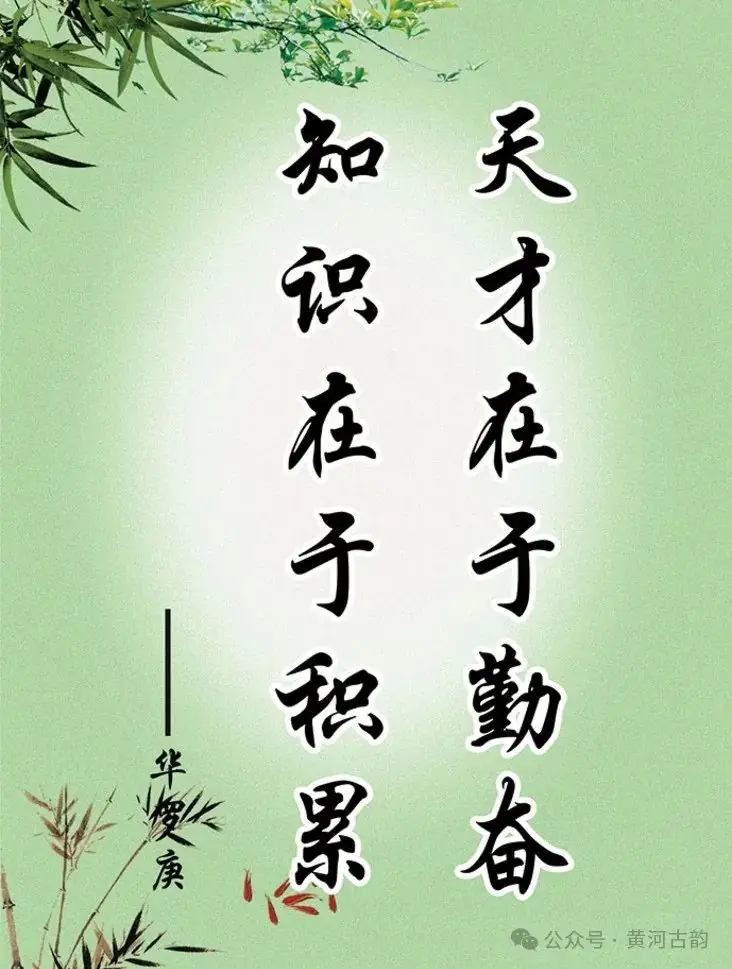 天才在于勤奋
知识在于积累
——华罗庚
公众号·黄河古韵